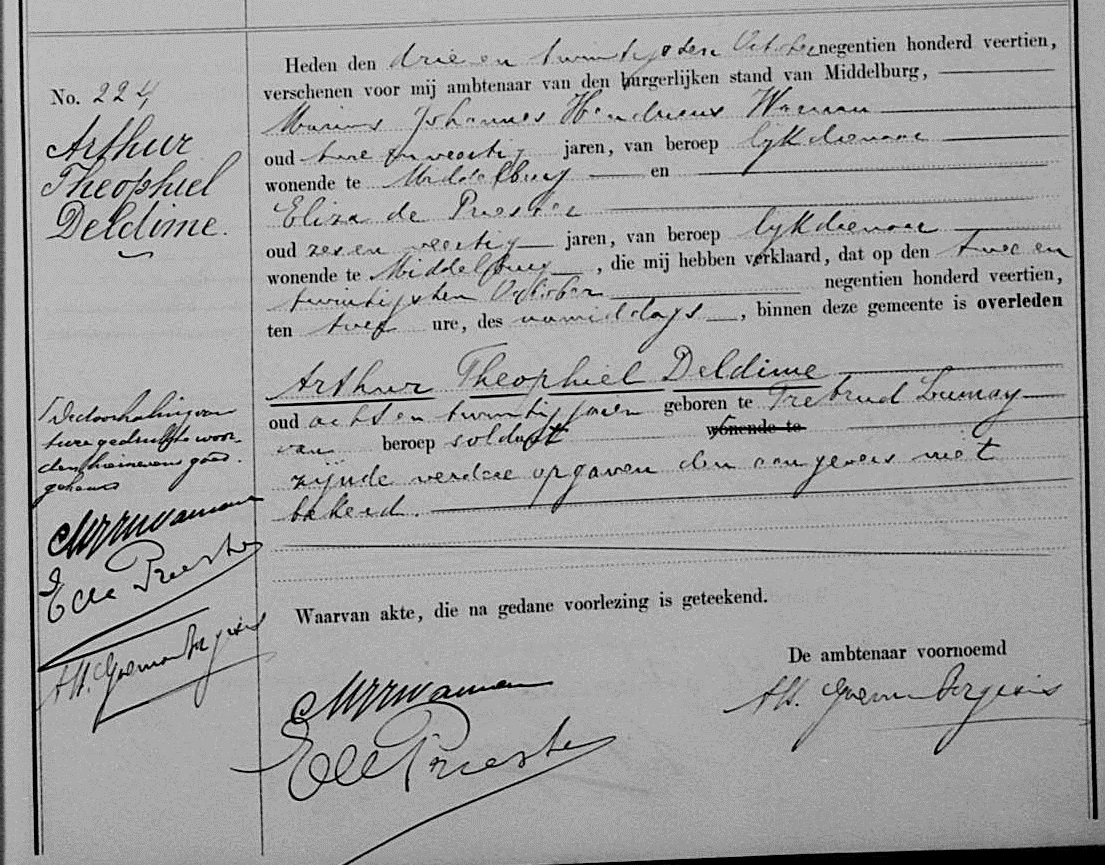 No. 224
Arthur
Theophiel
Deldime.
Heden den drie en twintigsten October negentien honderd veertien,
verschenen voor mij ambtenaar van den burgerlijken stand van Middelburg,
Marinus Johannes Hendricus Waman
oud twee en veertig jaren, van beroep lijkdienaar
wonende te Middelburg en
Eliza de Priester
oud zes en veertig jaren, van beroep lijkdienaar
wonende te Middelburg, die mij hebben verklaard, dat op den twee en
twintigsten October negentien honderd veertien,
ten twee ure, des namiddags, binnen deze gemeente is overleden
Arthur Theophiel Deldime
oud acht en twintig jaren geboren te Lumay
van beroep soldaat wonende te
zijnde verdere opgaven den aangevers niet
bekend.
De doorhaling van
twee gedrukte woor-
den hiernevens goed-
gekeurd
E de Priester
Waarvan akte, die na gedane voorlezing is geteekend.
De ambtenaar voornoemd
E de Priester